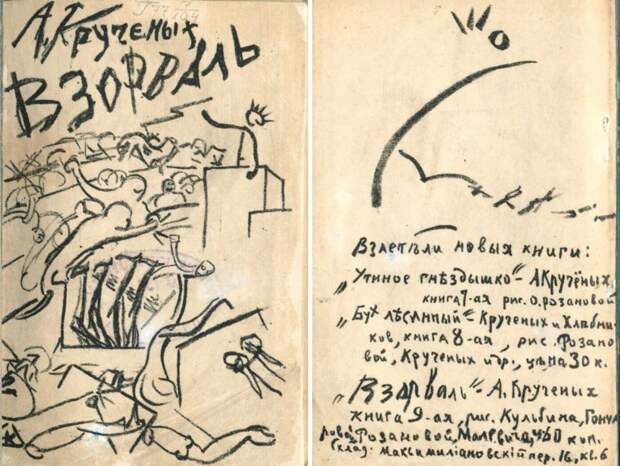 А. Крученых
ВЗОРВАЛЬ
Взлетѣли новыя книги:
„Утиное гнѣздышко" – А Кручёных,
книга 7-ая рис. О. Розановой
„Бух лѣсинный" – Крученых и Хлѣбни-
ков, книга 8-ая, рис. Розано-
вой, Крученых и др., цѣна 30 к.
„Взорваль" – А. Крученых
книга 9-ая, рис. Кульбина, Гонча
ровой Розановой, Малевича, 60 коп.
Склад: Максимиліановскій пер. 16, кв. 6